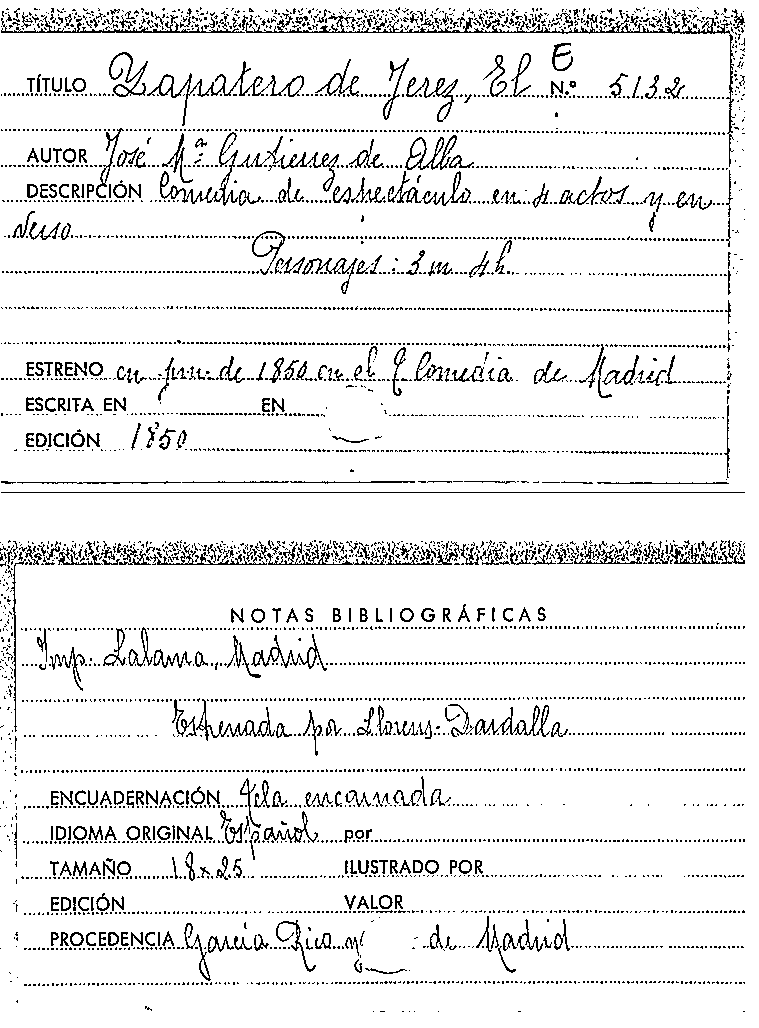 E
TÍTULO Zapatero de Jerez, El N.º 5132
AUTOR José Mª Gutierrez de Alba
DESCRIPCIÓN Comedia de espectáculo en 4 actos y en
verso
Personajes: 3 m 4 h.
ESTRENO en jun. de 1850 en el T. Comedia de Madrid
ESCRITA EN EN
EDICIÓN 1850
NOTAS BIBLIOGRÁFICAS
Imp. Lalama, Madrid
Estrenada por Llorens-Dardalla
ENCUADERNACIÓN Tela encarnada
IDIOMA ORIGINAL Español por
TAMAÑO 18x25 ILUSTRADO POR
EDICIÓN VALOR
PROCEDENCIA García Rico y de Madrid